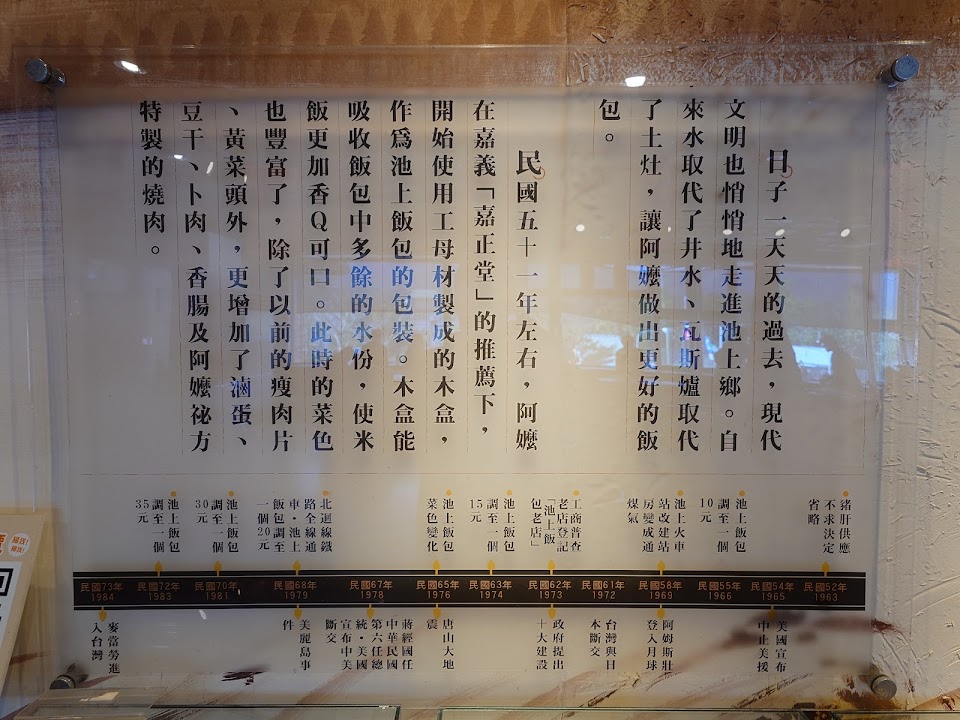 日子一天天的過去，現代
文明也悄悄地走進池上鄉。自
來水取代了井水、瓦斯爐取代
了土灶，讓阿嬤做出更好的飯
包。
民國五十一年左右，阿嬤
在嘉義「嘉正堂」的推薦下，
開始使用工母材製成的木盒，
作為池上飯包的包裝。木盒能
吸收飯包中多餘的水份，使米
飯更加香Q可口。此時的菜色
也豐富了，除了以前的瘦肉片
、黃菜頭外，更增加了滷蛋、
豆干、卜肉、香腸及阿嬤祕方
特製的燒肉。
豬肝供應
不求決定
省略
池上飯包
調至一個
10元
池上火車
站改建站
房變成通
煤氣
工商普查
老店登記
「池上飯
包老店」
池上飯包
調至一個
15元
池上飯包
菜色變化
北迴線鐵
路全線通
車，池上
飯包調至
一個20元
池上飯包
調至一個
30元
池上飯包
調至一個
35元
民國52年
1963
民國54年
1965
民國55年
1966
民國58年
1969
民國61年
1972
民國62年
1973
民國63年
1974
民國65年
1976
民國67年
1978
民國68年
1979
民國70年
1981
民國72年
1983
民國73年
1984
美國宣布
中止美援
阿姆斯壯
登入月球
台灣與日
本斷交
政府提出
十大建設
唐山大地
震
蔣經國任
中華民國
第六任總
統，美國
宣布中美
斷交
美麗島事
件
麥當勞進
入台灣